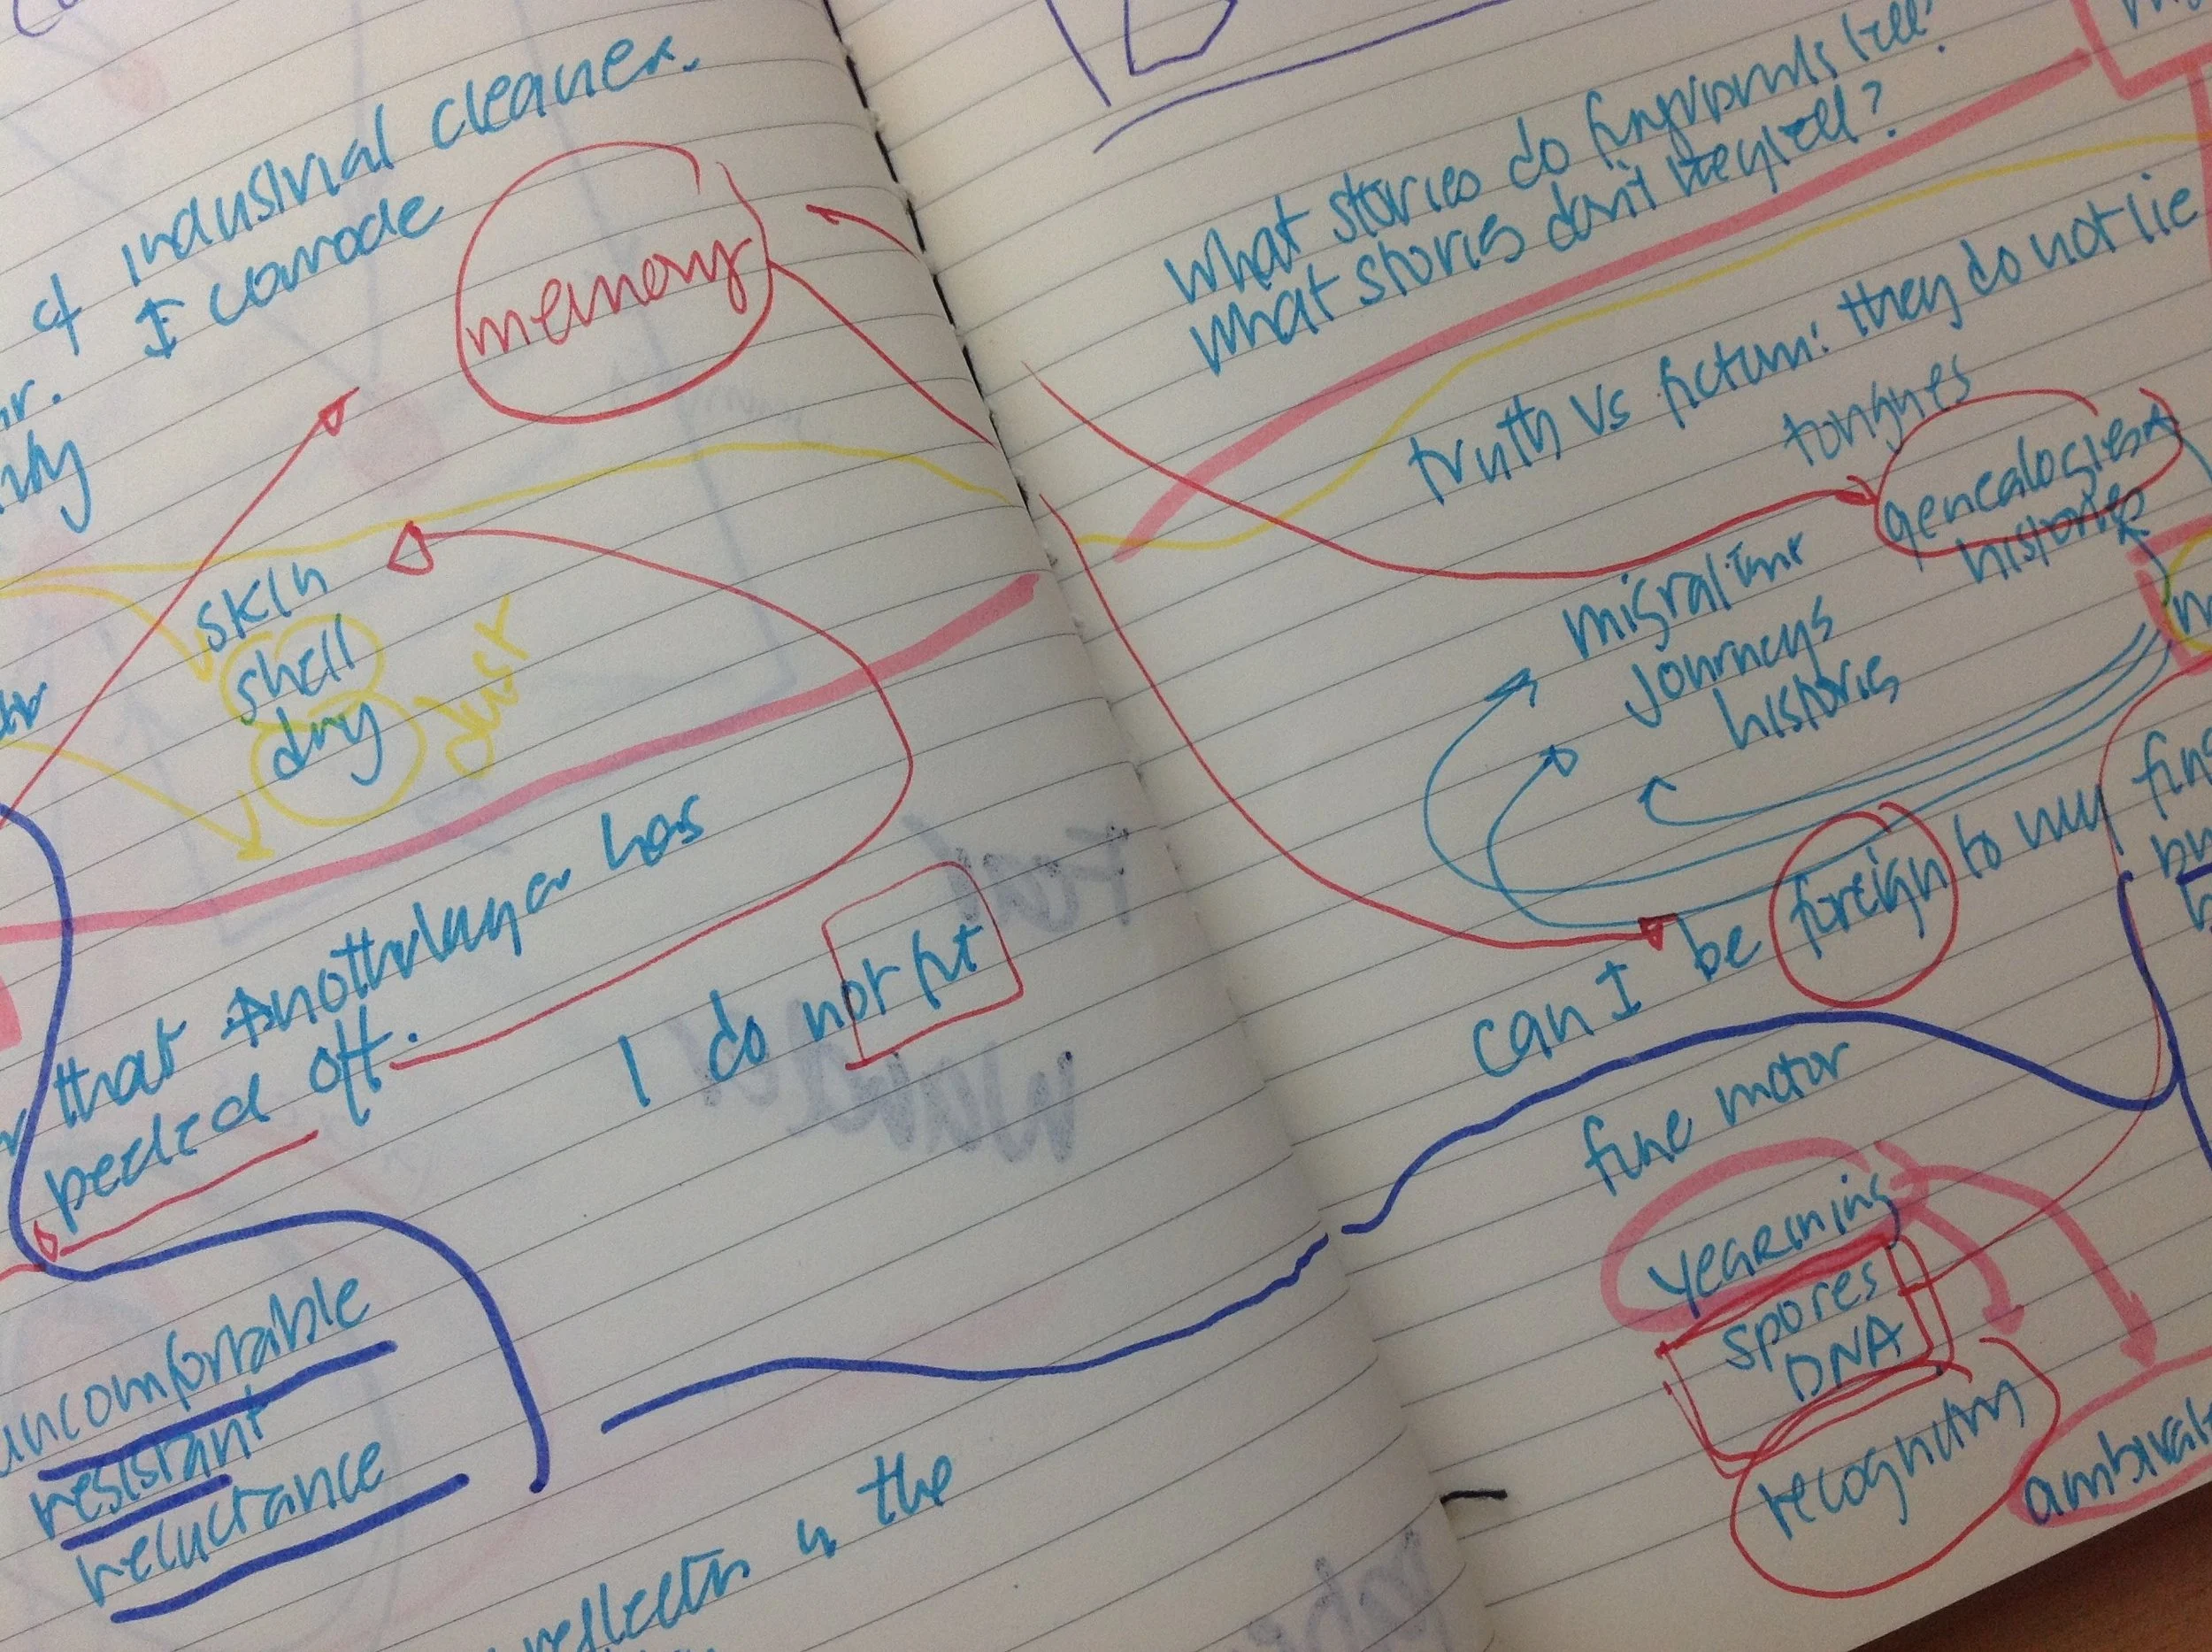 & industrial cleaner.
I corrode
memory
skin
shell
dry
dust
that another layer has
peeled off.
I do not fit
uncomfortable
resistant
reluctance
reflection in the
what stories do fingerprints tell?
what stories don't they tell?
truth vs fiction: they do not lie
tongues
genealogies
histories
migration
journeys
histories
can I be foreign to my
fine motor
yearning
spores
DNA
recognition